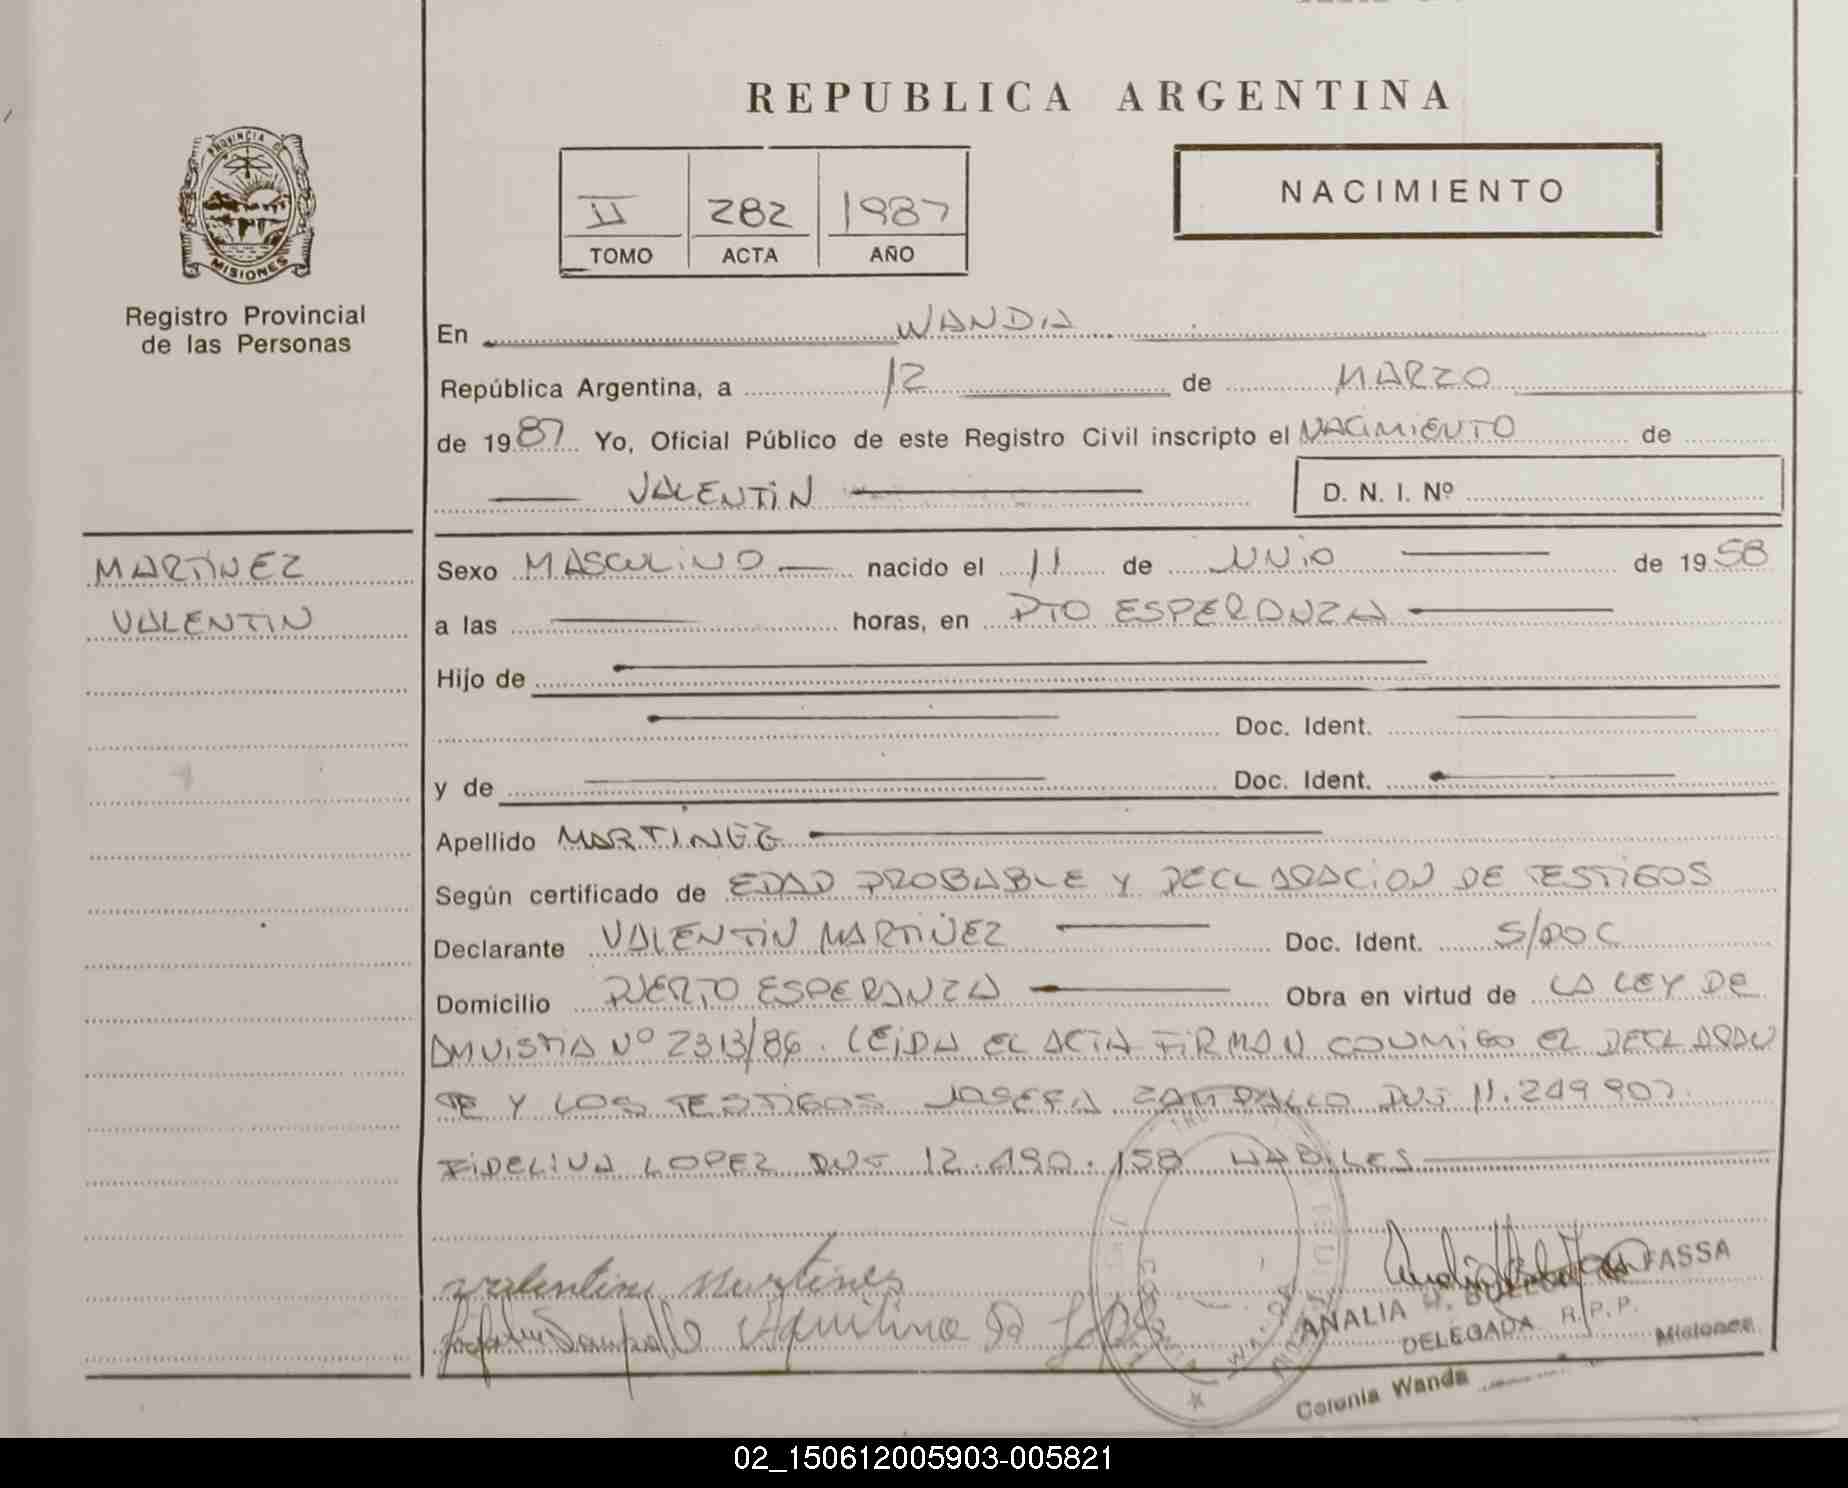 REPUBLICA ARGENTINA
NACIMIENTO
II 282 1987
TOMO ACTA AÑO
PROVINCIA DE
MISIONES
Registro Provincial
de las Personas
MARTINEZ
VALENTIN
En WANDA
República Argentina, a 12 de MARZO
de 1987 Yo, Oficial Público de este Registro Civil inscripto el NACIMIENTO de
VALENTIN D. N. I. Nº
Sexo MASCULINO nacido el 11 de JUNIO de 1958
a las horas, en PTO ESPERANZA
Hijo de
Doc. Ident.
y de Doc. Ident.
Apellido MARTINEZ
Según certificado de EDAD PROBABLE Y DECLARACION DE TESTIGOS
Declarante VALENTIN MARTINEZ Doc. Ident. S/DOC
Domicilio PUERTO ESPERANZA Obra en virtud de LA LEY DE
AMNISTIA Nº 2313/86. LEIDA EL ACTA FIRMAN CONMIGO EL DECLARAN
TE Y LOS TESTIGOS JOSEFA DNI 11.249.907.
FIDELINA LOPEZ DNI 12.490.158 HABILES
Valentin Martines
Aquilina
ANALIA FASSA
DELEGADA R.P.P.
Colonia Wanda Misiones
02_150612005903-005821